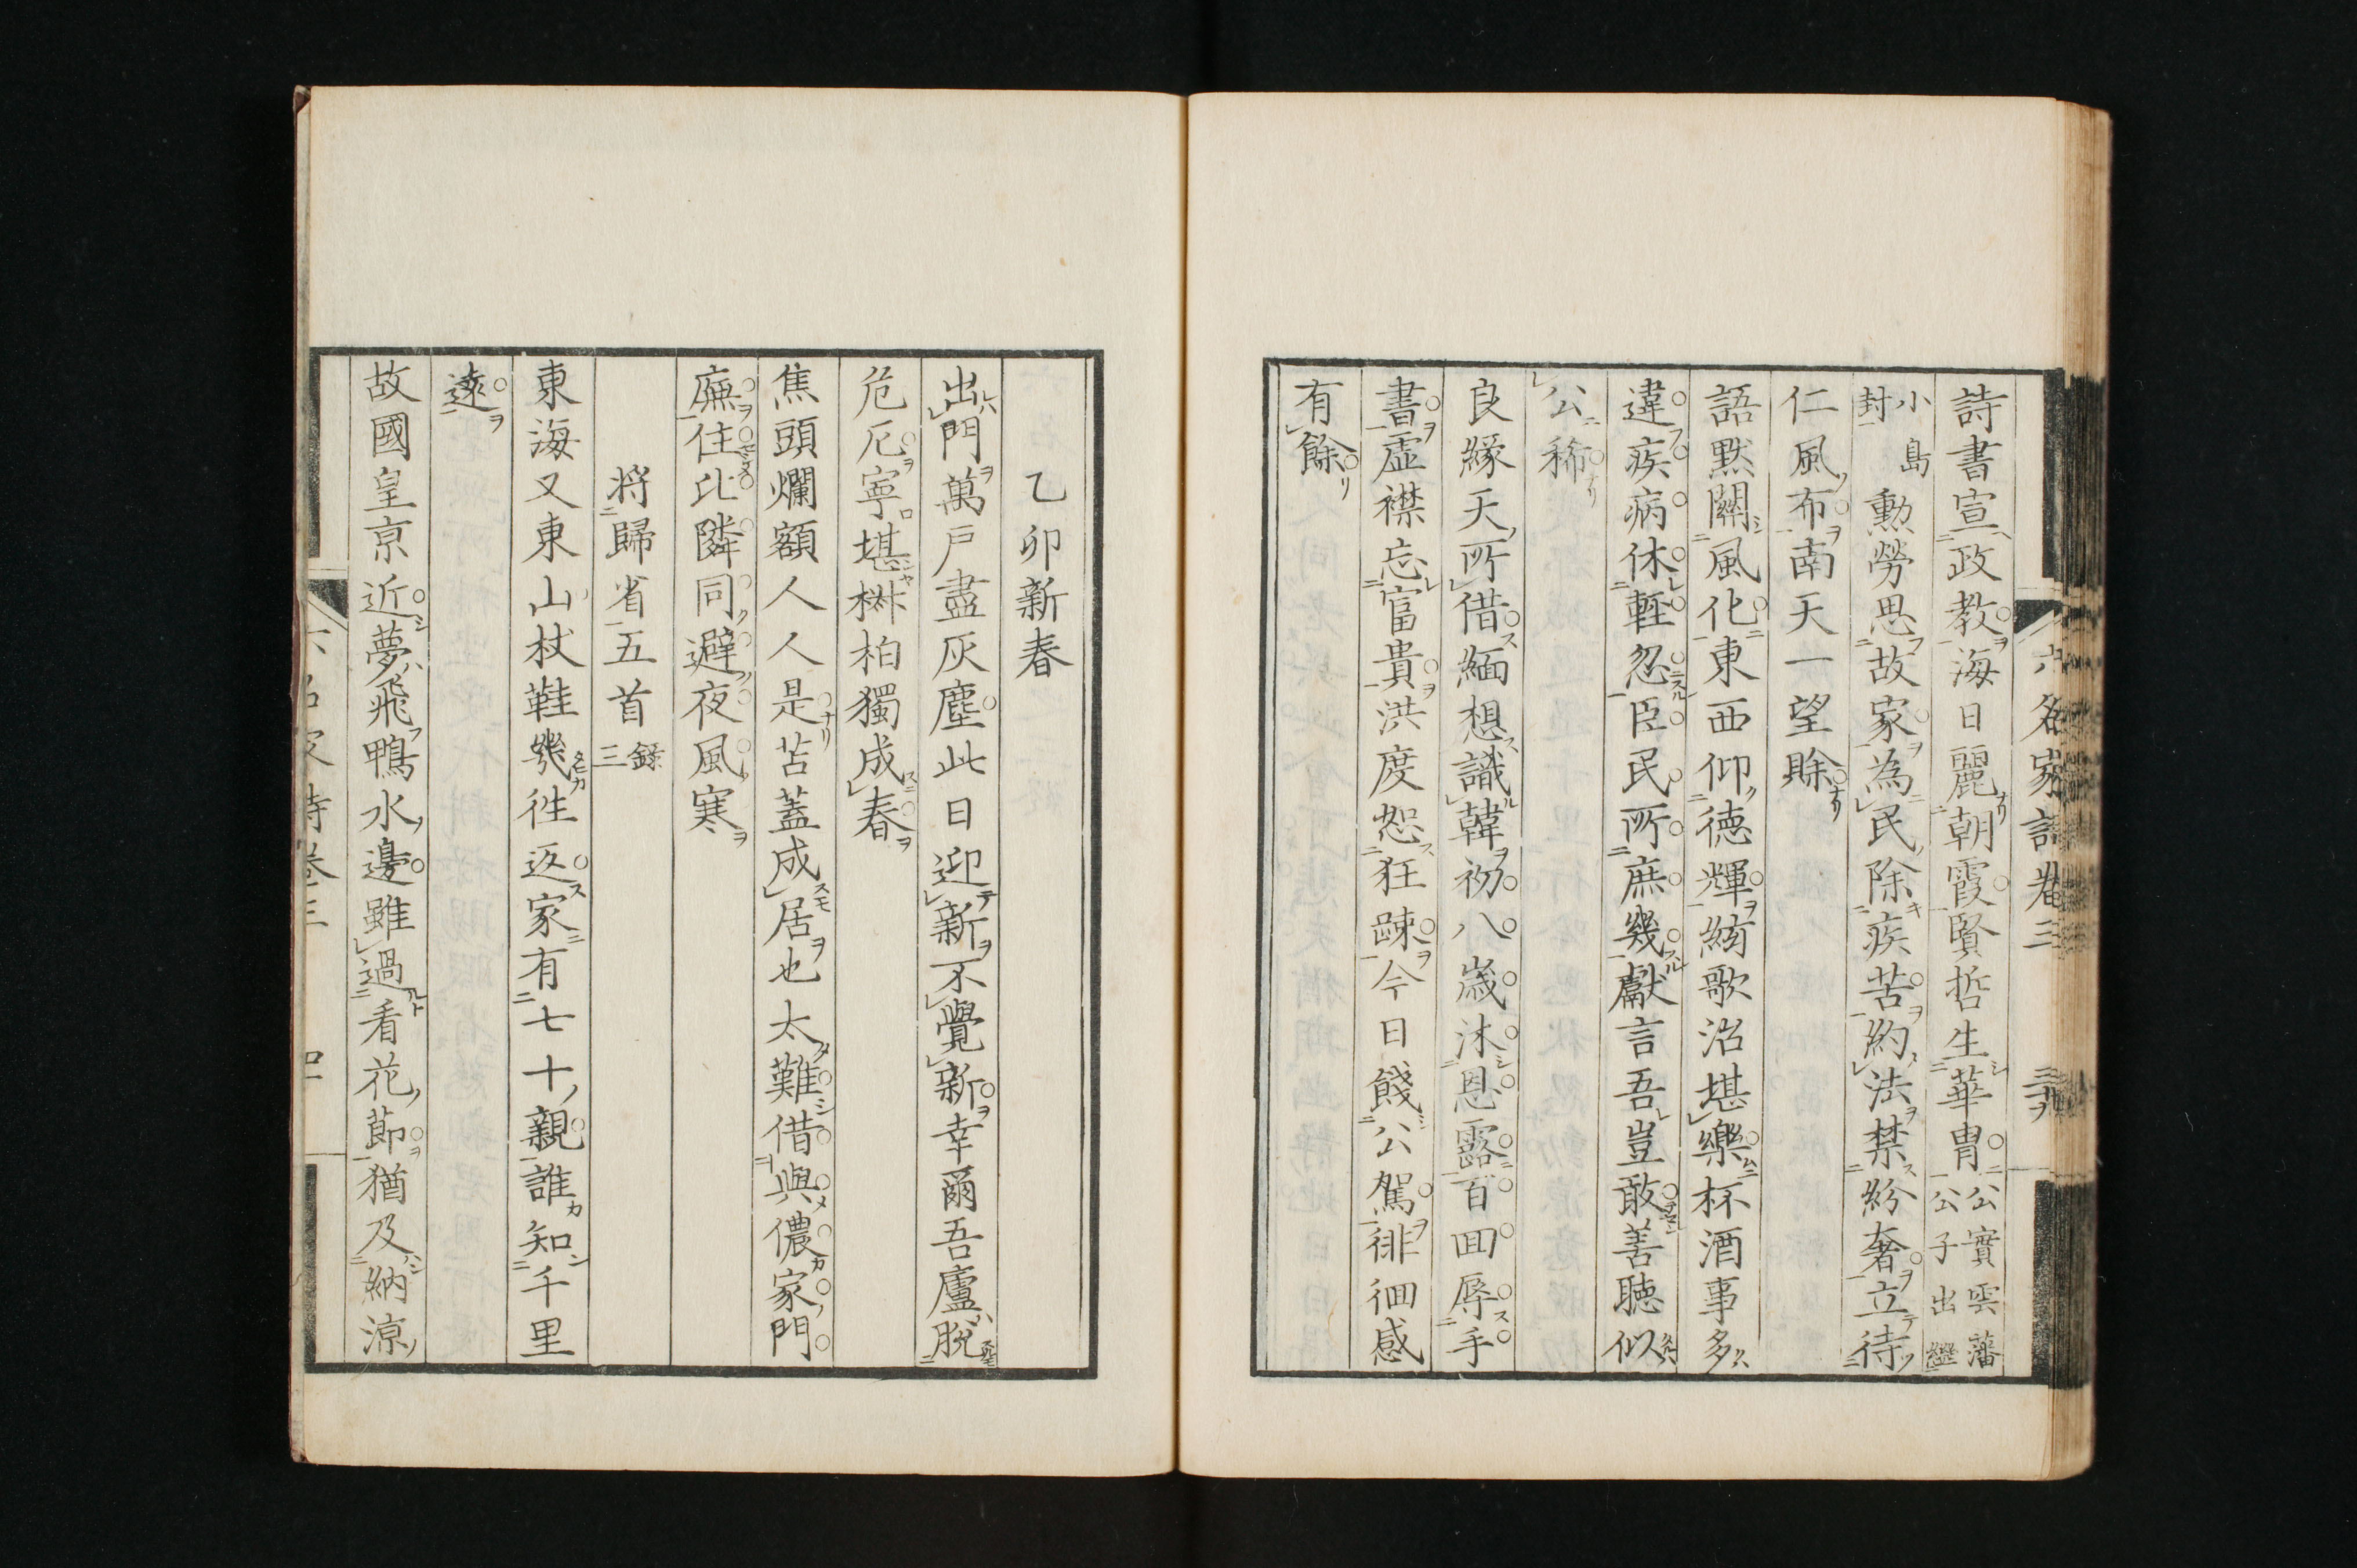 詩書宣政教海日麗朝霞賢哲生華冑公實雲藩公子出繼
小島封勳勞思故家為民除疾苦約法禁紛奢立待
仁風布南天一望賒
語默關風化東西仰德輝絃歌治堪樂杯酒事多
違疾病休輕忽臣民所庶幾獻言吾豈敢善聽似
公稀
良緣天所借緬想識韓初八歲沐恩露百回辱手
書虛襟忘富貴洪度恕狂踈今日餞公駕徘徊感
有餘
六名家詩卷三
乙卯新春
出門萬戶盡灰塵此日迎新不覺新幸爾吾廬脫
危厄寧堪椒柏獨成春
焦頭爛額人人是苫蓋成居也太難借與儂家門
廡住比隣同避夜風寒
將歸省五首錄三
東海又東山杖鞋幾往返家有七十親誰知千里
遠
故國皇京近夢飛鴨水邊雖過看花節猶及納涼